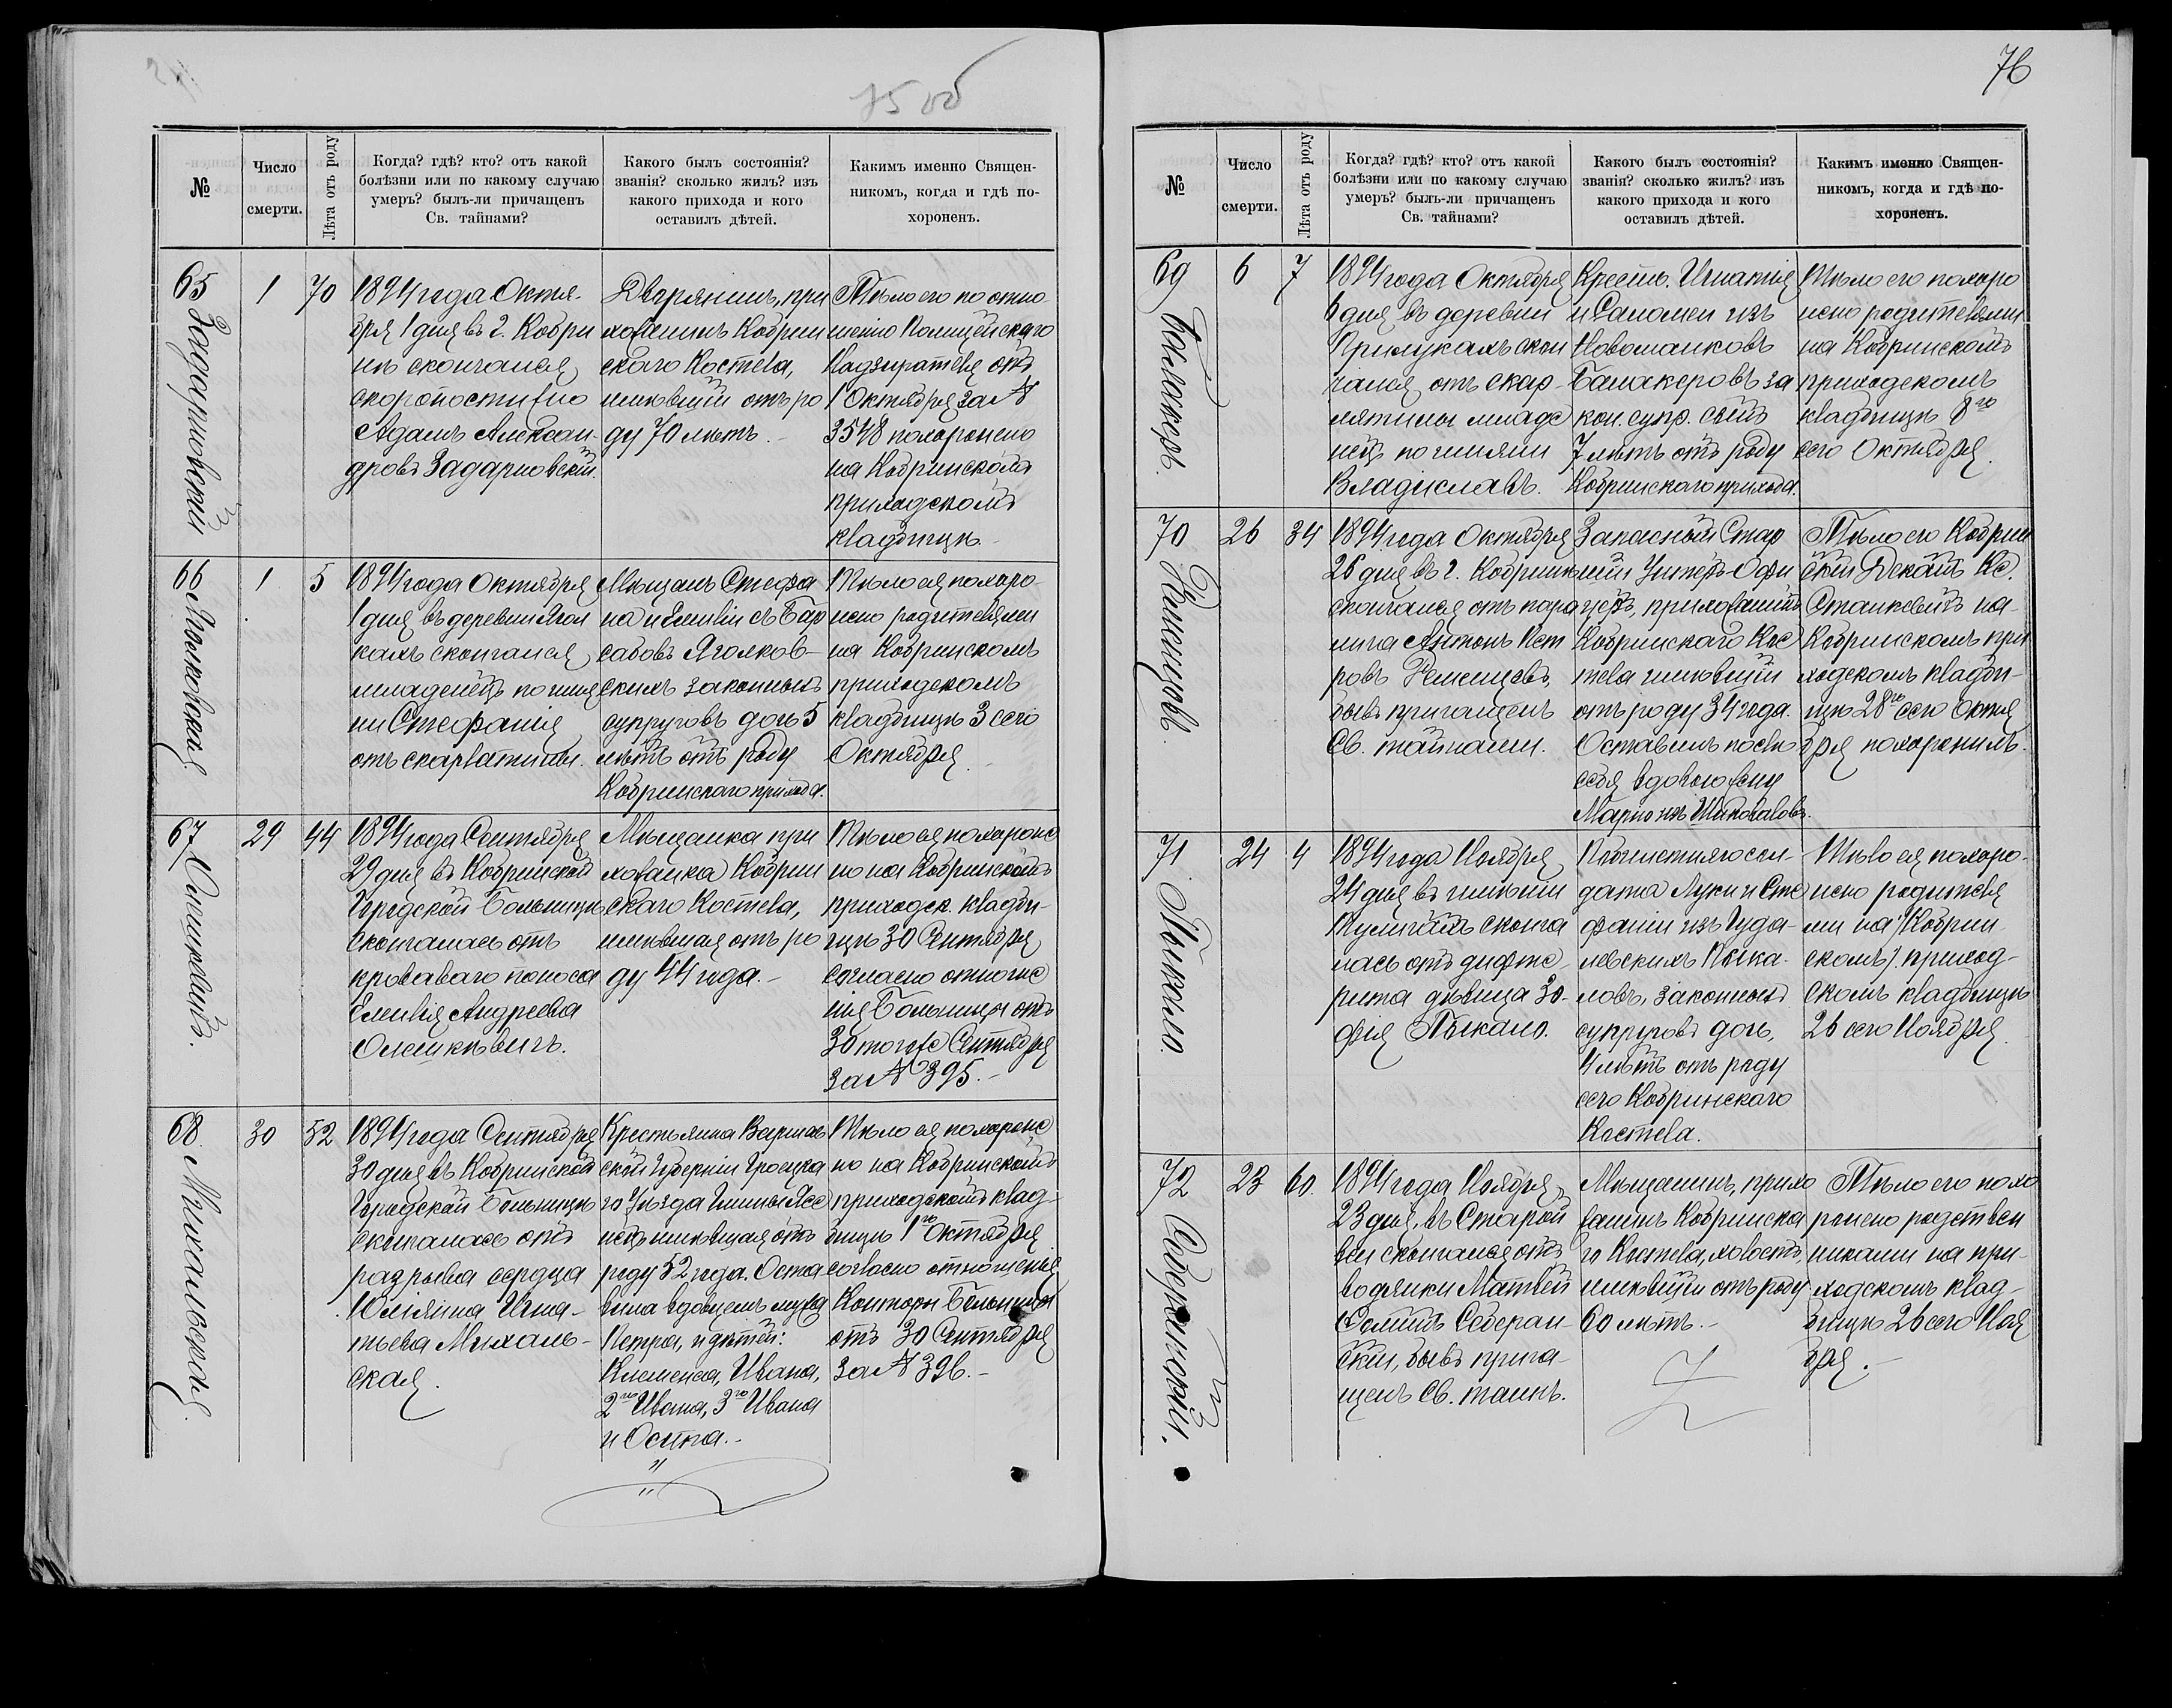 75 об
№
Число
смерти.
Лѣта отъ роду
Когда? гдѣ? кто? отъ какой
болѣзни или по какому случаю
умеръ? былъ-ли причащенъ
Св. тайнами?
Какого былъ состоянія?
званія? сколько жилъ? изъ
какого прихода и кого
оставилъ дѣтей.
Какимъ именно Священ-
никомъ, когда и гдѣ по-
хороненъ.
65
Задарновскій
1
70
1894 года Октя-
бря 1 дня въ г. Кобри
нѣ скончался
скоропостижно
Адамъ Алексан-
дровъ Задарновскій.
Дворянинъ, при
хожанинъ Кобрин
скаго Костела,
имѣвшій отъ ро
ду 70 лѣтъ.-
Тѣло его по отно
шенію Полицейскаго
Надзирателя отъ
1 Октября за №
3548 похоронено
на Кобринскомъ
приходскомъ
кладбищѣ.-
66
1
5
1894 года Октября
1 дня въ деревни Ягол
кахъ скончался
младенецъ по имя
ни Стефанія
отъ скарлатины.
Мѣщанъ Стефа
на и Емиліи съ Бар
совъ Яголков-
скихъ законныхъ
супруговъ дочь 5
лѣтъ отъ роду
Кобринскаго прихода.
Тѣло ея похоро-
нено родителями
на Кобринскомъ
приходскомъ
кладбищѣ 3 сего
Октября.
67
29
44
1894 года Сентября
29 дня въ Кобринской
Городской Больницѣ
скончалась отъ
кроваваго поноса
Емилія Андреева
Олешкѣвичъ.
Мѣщанка при
хожанка Кобрин
скаго Костела,
имѣвшая отъ ро
ду 44 года.-
Тѣло ея похороне
но на Кобринскомъ
приходск. кладби-
щѣ 30 Сентября
согласно отноше
нія Больницы отъ
30 того же Сентября
за № 395.-
68.
Михальская.
30
52
1894 года Сентября
30 дня въ Кобринской
Городской Больницѣ
скончалась отъ
разрыва сердца
Юліянна Игна-
тьева Михаль-
ская.
Крестьянка Варшав
ской Губерніи Гроецка
го Уѣзда Гмины Ясе
нецъ имѣвшая отъ
роду 52 года. Оста
вила вдовцемъ мужа
Петра, и дѣтей:
Клеменса, Ивана,
2го Ивана, 3го Ивана
и Осипа.-
Тѣло ея похороне
но на Кобринскомъ
приходскомъ клад-
бищѣ 1го Октября
согласно отношенія
Конторы Больницы
отъ 30 Сентября
за № 396.-
76
№
Число
смерти.
Лѣта отъ роду
Когда? гдѣ? кто? отъ какой
болѣзни или по какому случаю
умеръ? былъ-ли причащенъ
Св. тайнами?
Какого былъ состоянія?
званія? сколько жилъ? изъ
какого прихода и кого
оставилъ дѣтей.
Какимъ именно Священ-
никомъ, когда и гдѣ по-
хороненъ.
69
Балакеръ.
6
7
1894 года Октября
6 дня въ деревни
Прилукахъ скон
чался отъ скар-
лятины младе
нецъ по имяни
Владиславъ.
Крестьн. Игнатія
и Саломеи изъ
Новомлынковъ
Балакеровъ за
кон. супр. сынъ
7 лѣтъ отъ роду
Кобринскаго прихода.
Тѣло его похоро
нено родителями
на Кобринскомъ
приходскомъ
кладбищѣ 8го
сего Октября.
70
Ременцовъ.
26
34
1894 года Октября
26 дня въ г. Кобринѣ
скончался отъ пара
лича Антонъ Пет
ровъ Ременцевъ,
бывъ причащенъ
Св. тайнами.
Запасный Стар
шій Унтеръ-Офи
церъ, прихожанинъ
Кобринскаго Кос
тела имѣвшій
отъ роду 34 года.
Оставилъ послѣ
себя вдовою жену
Марію изъ
Тѣло его Кобрин
скій Деканъ Кс.
Станкевичъ на-
Кобринскомъ при
ходскомъ кладби-
щѣ 28го сего Октя
бря похоронилъ.
71.
Пыкало.
24
4
1894 года Ноября
24 дня въ имѣніи
скончa
лась отъ дифте
рита дѣвица Зо-
фія Пыкало.
дата Луки и Сте
фаніи изъ Гуда-
левскихъ Пыка-
ловъ, законныхъ
супруговъ дочь,
4 лѣтъ отъ роду
сего Кобринскаго
Костела.
Тѣло ея похоро-
нено родителя
ми на /Кобрин
скомъ/ приход-
скомъ кладбищѣ
26 сего Ноября.
72
23
60.
1894 года Ноября
23 дня, въ Старой
вси скончался отъ
водянки Матвѣй
скій, бывъ прича-
щенъ Св. таинъ.
Мѣщанинъ, прихо
жанинъ Кобринска
го Костела, холостъ,
имѣвшій отъ роду
60 лѣтъ.-
Тѣло его похо
ронено родствен
никами на при-
ходскомъ клад-
бищѣ 26 сего Ноя
бря.-